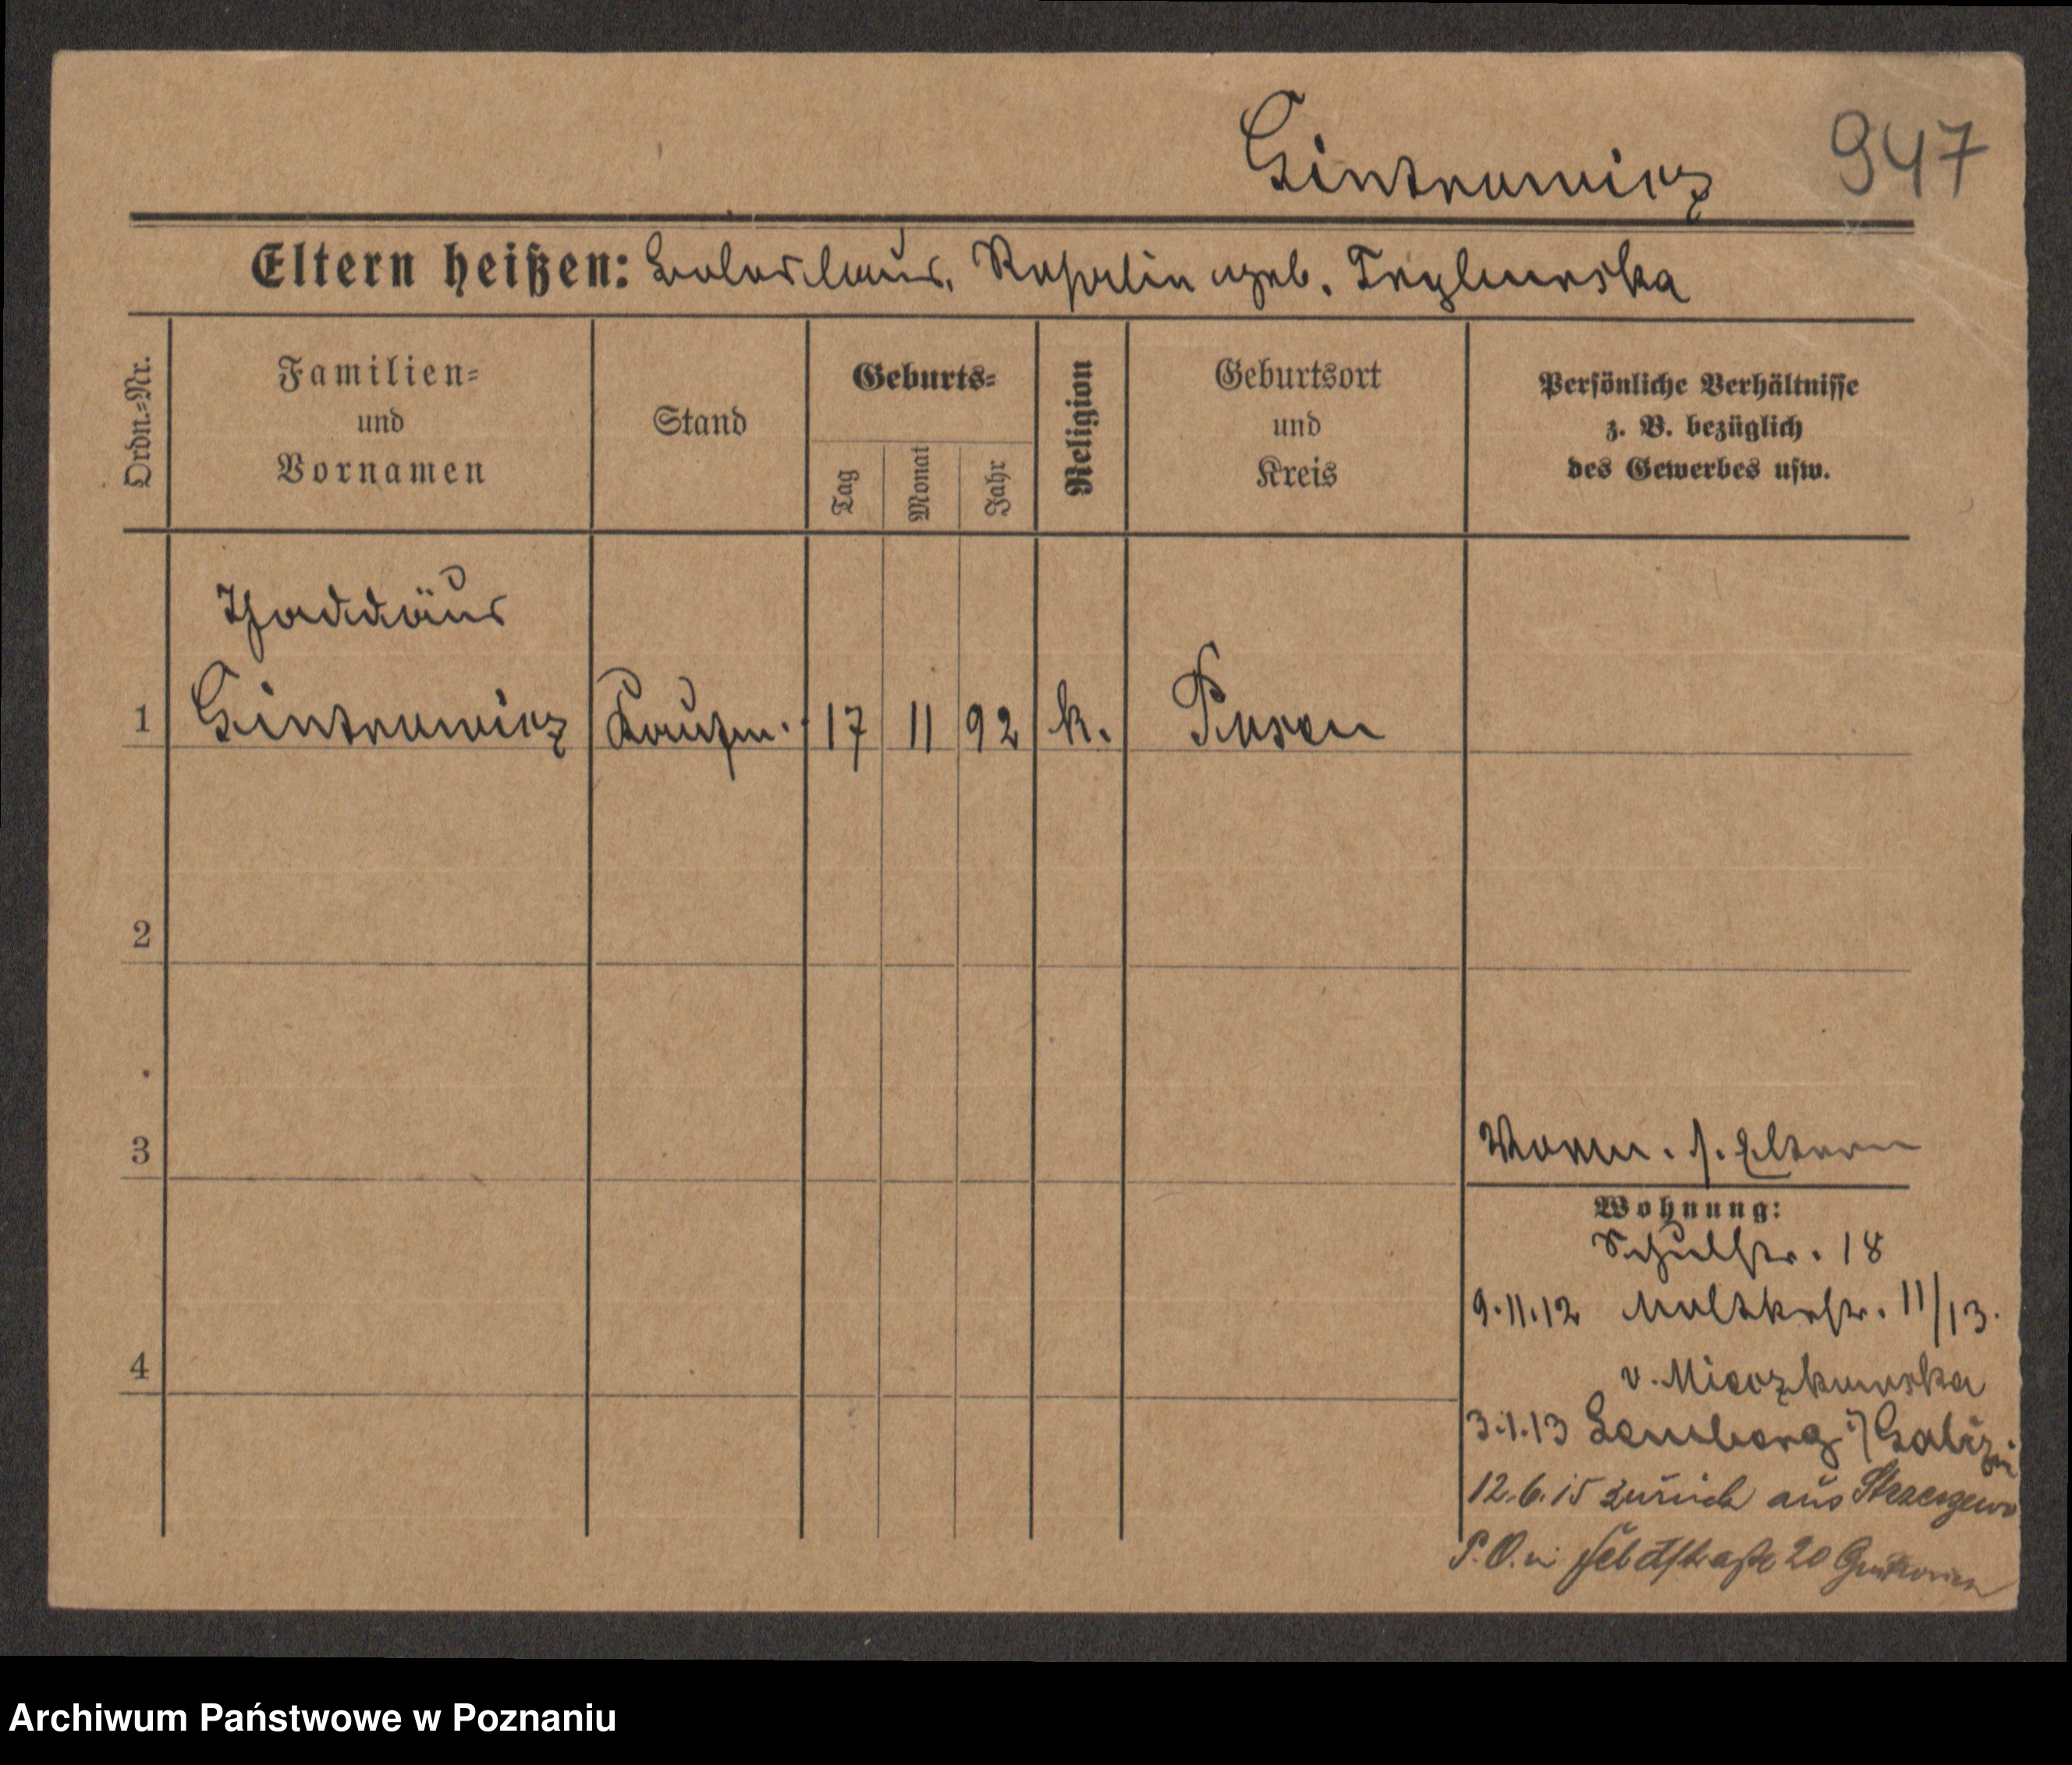 Gintrowicz 947
Eltern heißen: Boleslaus, Rosalie geb. Treglewska
Ordn.=Nr.
Familien=
und
Vornamen
Stand
Geburts=
Tag
Monat
Jahr
Religion
Geburtsort
und
Kreis
Persönliche Verhältnisse
z. B. bezüglich
des Gewerbes usw.
Thaddäus
1 Gintrowicz Kaufm. 17 11 92 k. Posen
2
3 s. Eltern
Wohnung:
Schulstr. 18
9.11.12 Moltkestr. 11/13.
4 v. Mieczkowska
3.1.13 Lemberg i/Galizi
12.6.15 zurück aus
20 Gintrowicz
Archiwum Państwowe w Poznaniu